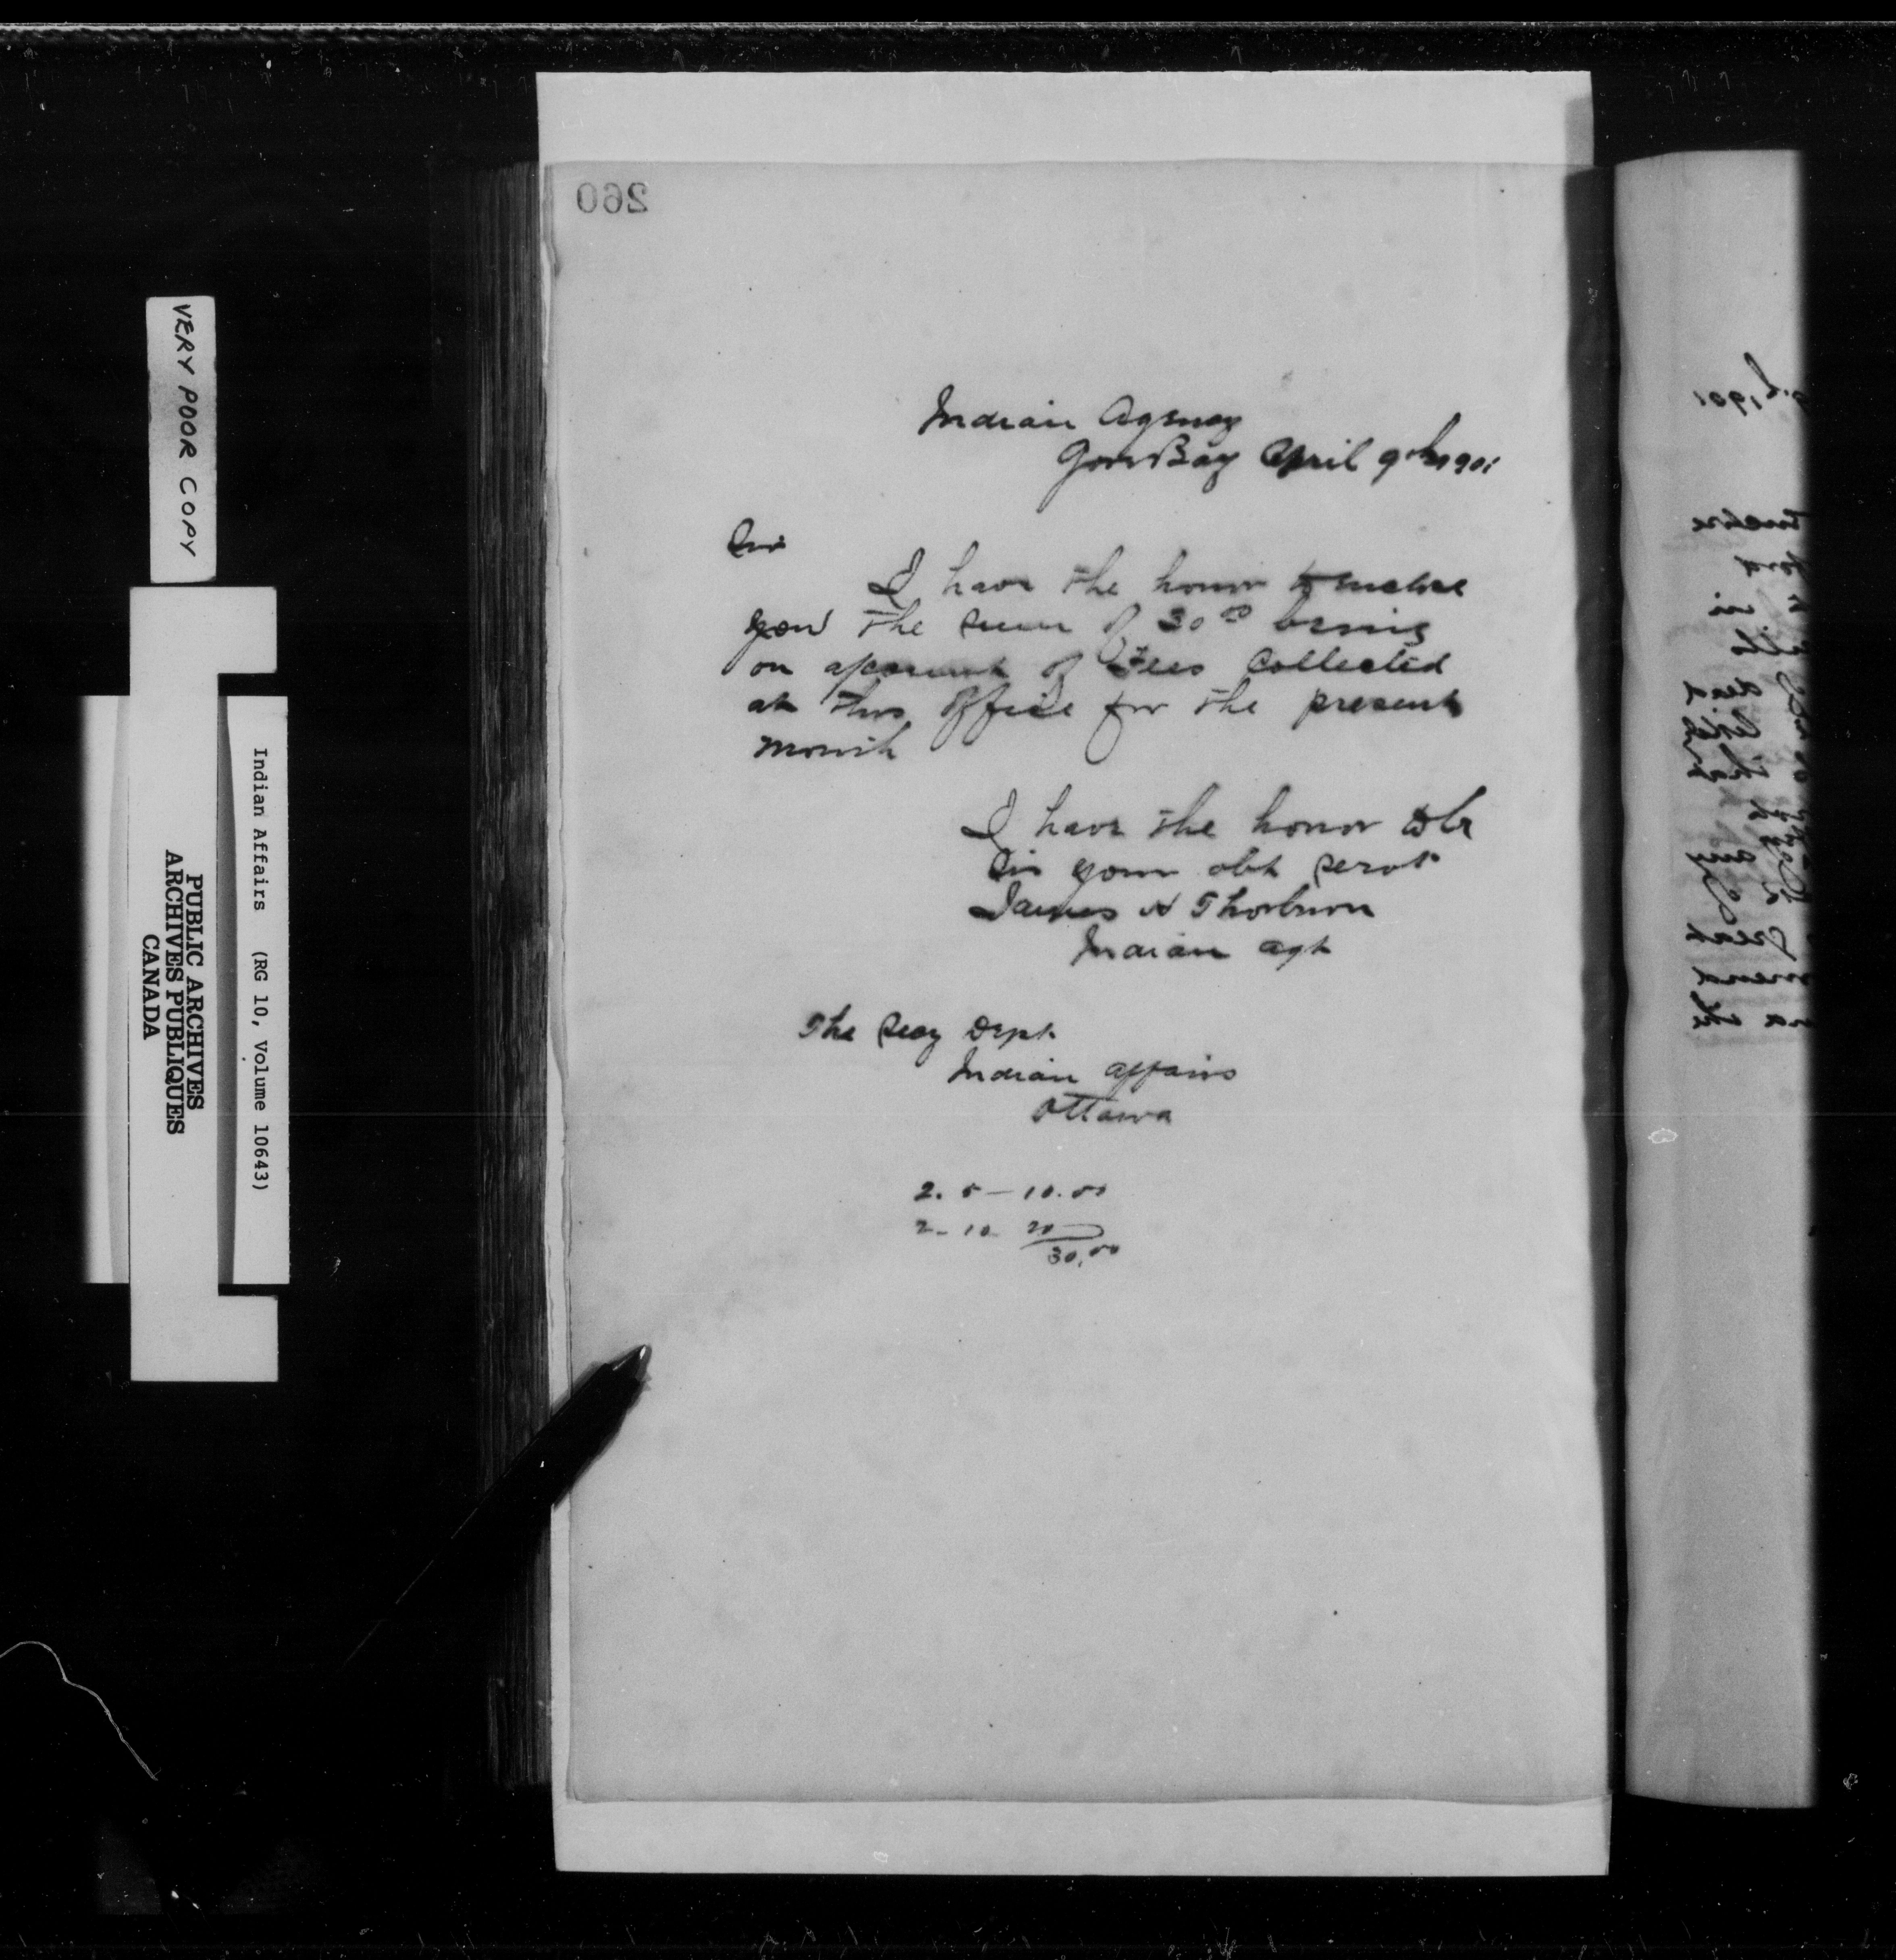 260
Indian Agency
Gore Bay April 9th 1901
Sir
I have the honor to enclose
you the sum of 30 00 being
on account of Fees Collected
at this Office for the present
month
I have the honor to be
Sir your obt servt
James H Thorburn
Indian Agt
The Secy Dept
Indian Affairs
Ottawa
2. 5 — 10.00
2 - 10 20
30.00
VERY POOR COPY
Indian Affairs (RG 10, Volume 10643)
PUBLIC ARCHIVES
ARCHIVES PUBLIQUES
CANADA